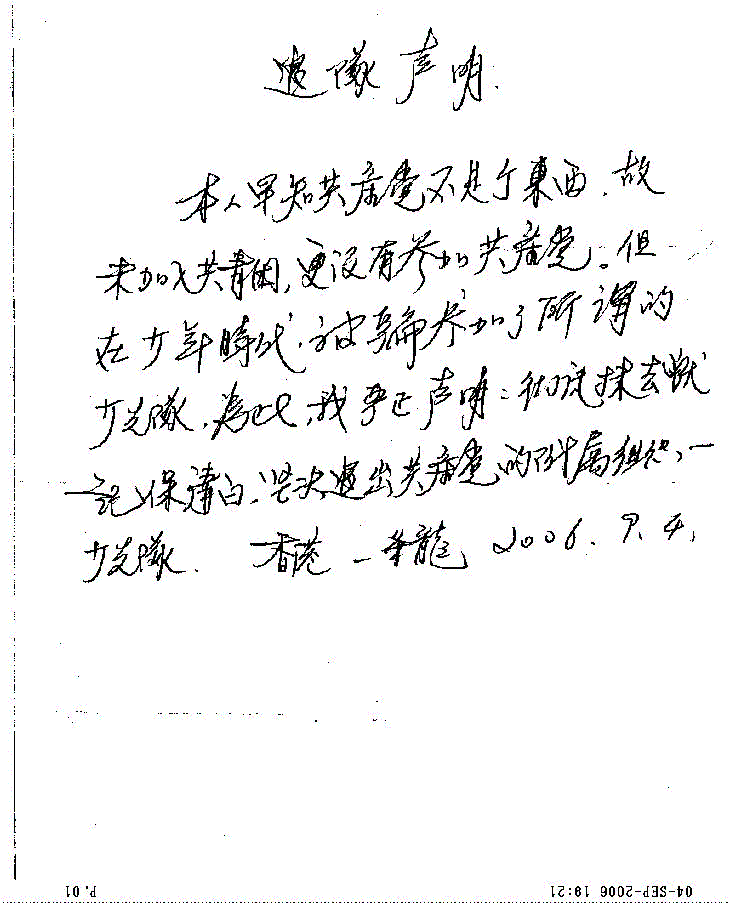 退隊声明.
本人早知共産党不是个東西.故
未加入共青团,更没有参加共産党。但
在少年時代.被骗参加了所謂的
少先隊.為此,我严正声明:彻底抹去獸
记,保清白.坚决退出共産党的附属組织、一
少先隊. 香港 一条龍 2006.9.4.
P.01
04-SEP-2006 19:21